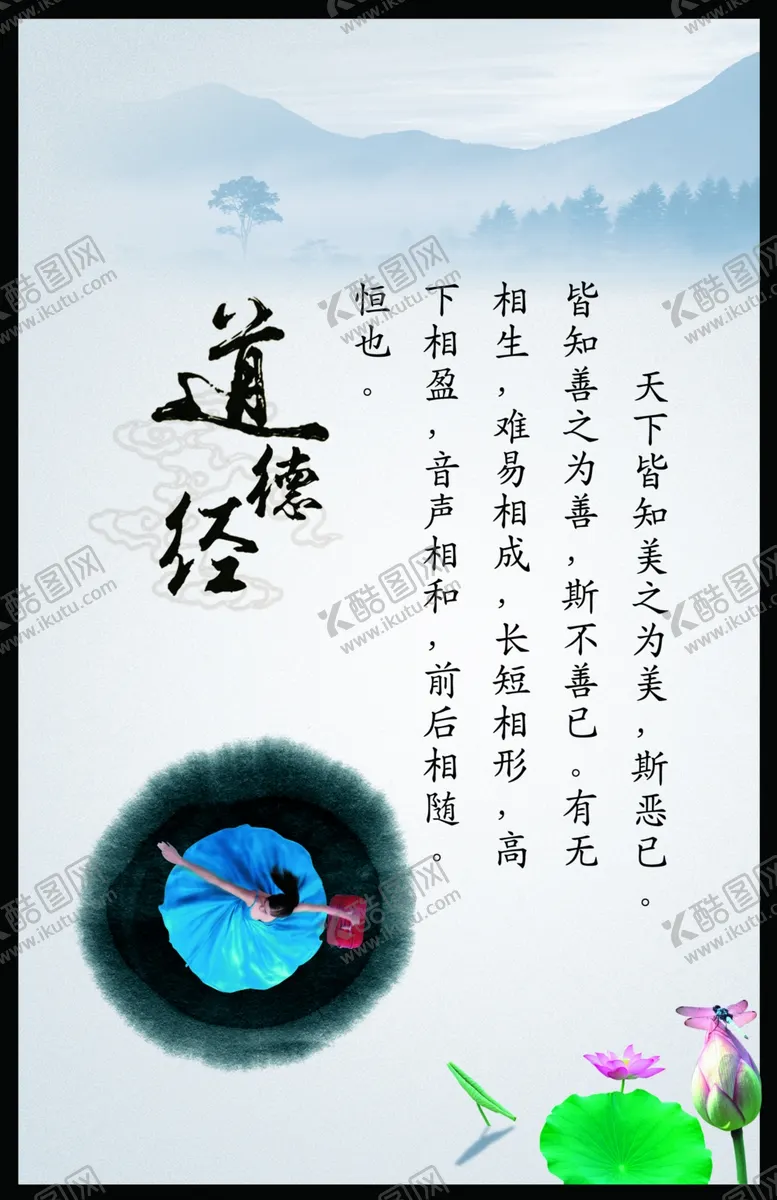 天下皆知美之为美,斯恶已。
皆知善之为善,斯不善已。有无
相生,难易相成,长短相形,高
下相盈,音声相和,前后相随。
恒也。
道德经
酷图网
www.ikutu.com